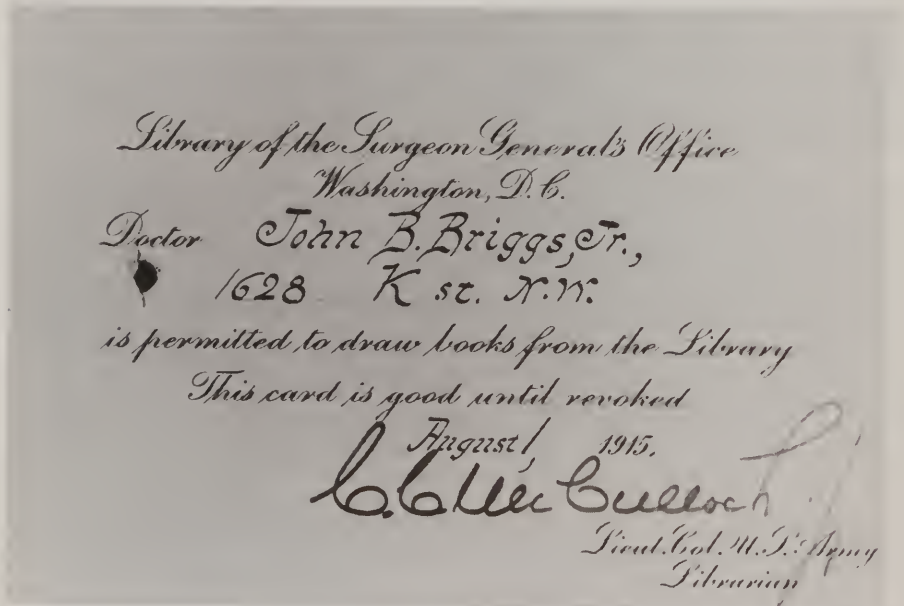 Library of the Surgeon General's Office
Washington, D.C.
Doctor John B. Briggs, Jr.,
1628 K st. N.W.
is permitted to draw books from the Library
This card is good until revoked
August 1, 1915.
C. C. McCulloch Jr.
Lieut. Col. U.S. Army
Librarian